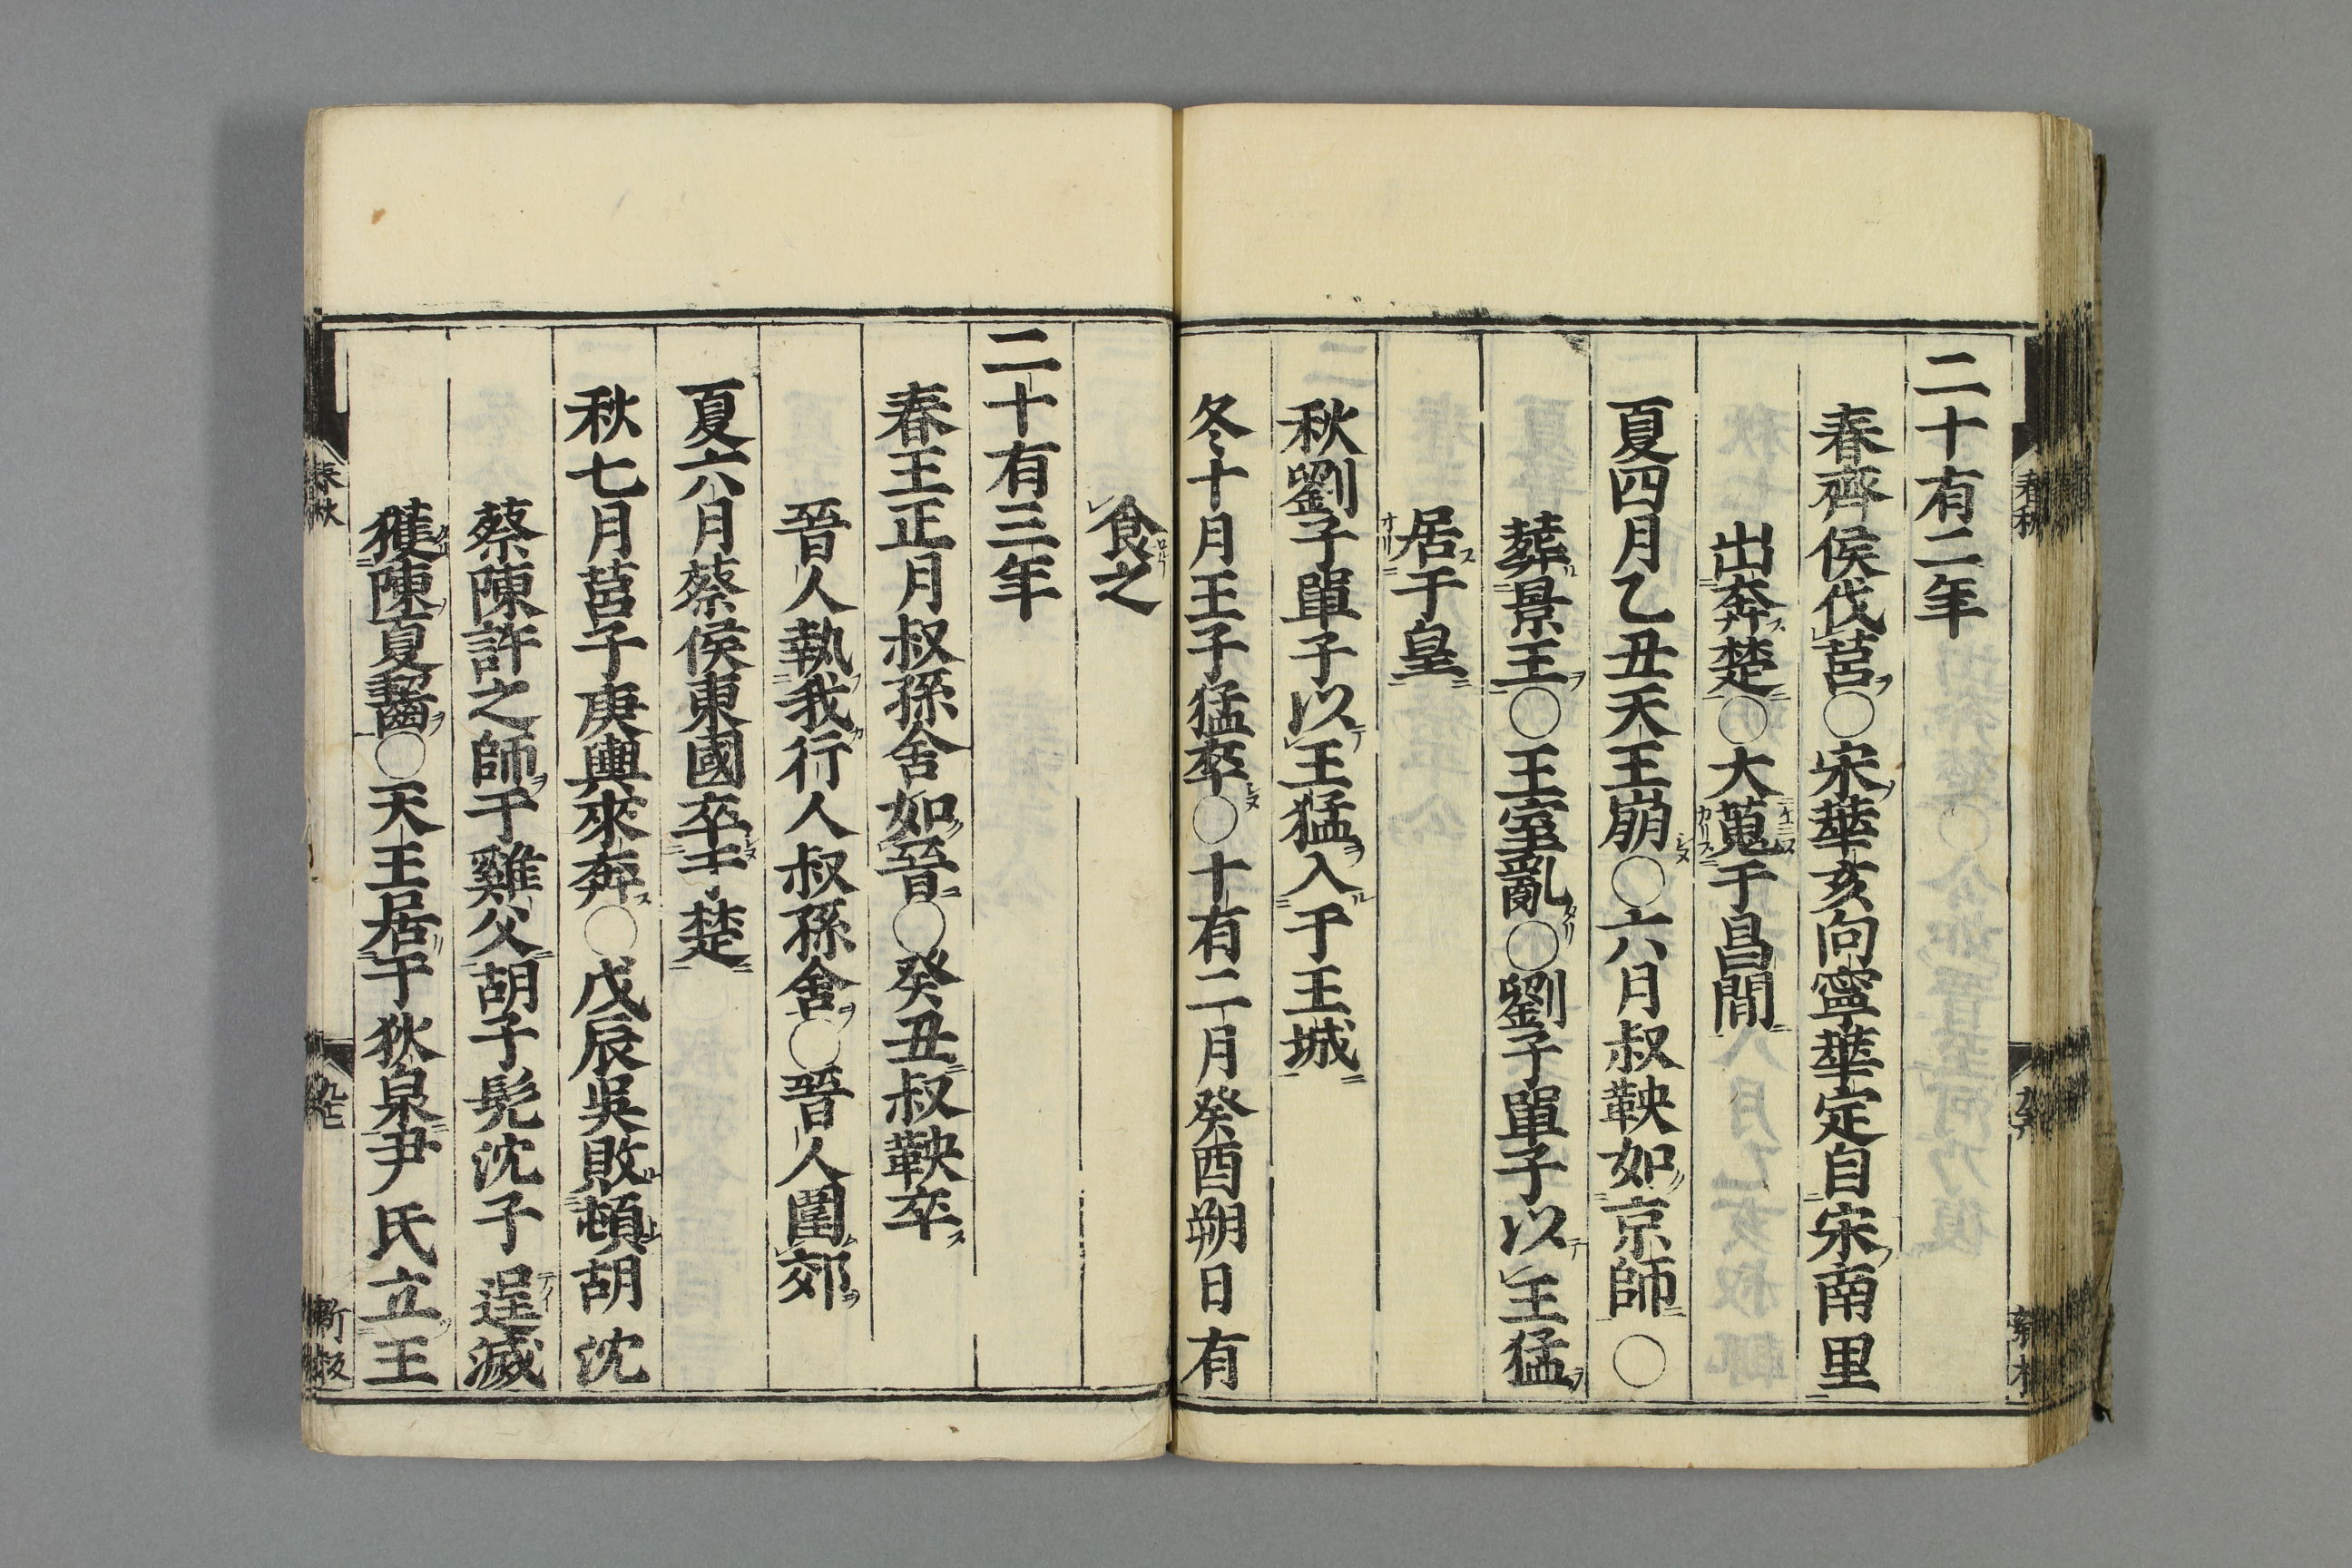 二十有二年
春齊侯伐莒○宋華亥向寧華定自宋南里
出奔楚○大蒐于昌間
夏四月乙丑天王崩○六月叔鞅如京師○
葬景王○王室亂○劉子單子以王猛
居于皇
秋劉子單子以王猛入于王城
冬十月王子猛卒○十有二月癸酉朔日有
食之
二十有三年
春王正月叔孫舍如晉○癸丑叔鞅卒
晉人執我行人叔孫舍○晉人圍郊
夏六月蔡侯東國卒于楚
秋七月莒子庚輿來奔○戊辰吳敗頓胡沈
蔡陳許之師于雞父胡子髡沈子逞滅
獲陳夏齧○天王居于狄泉尹氏立王
春秋
九七
新板